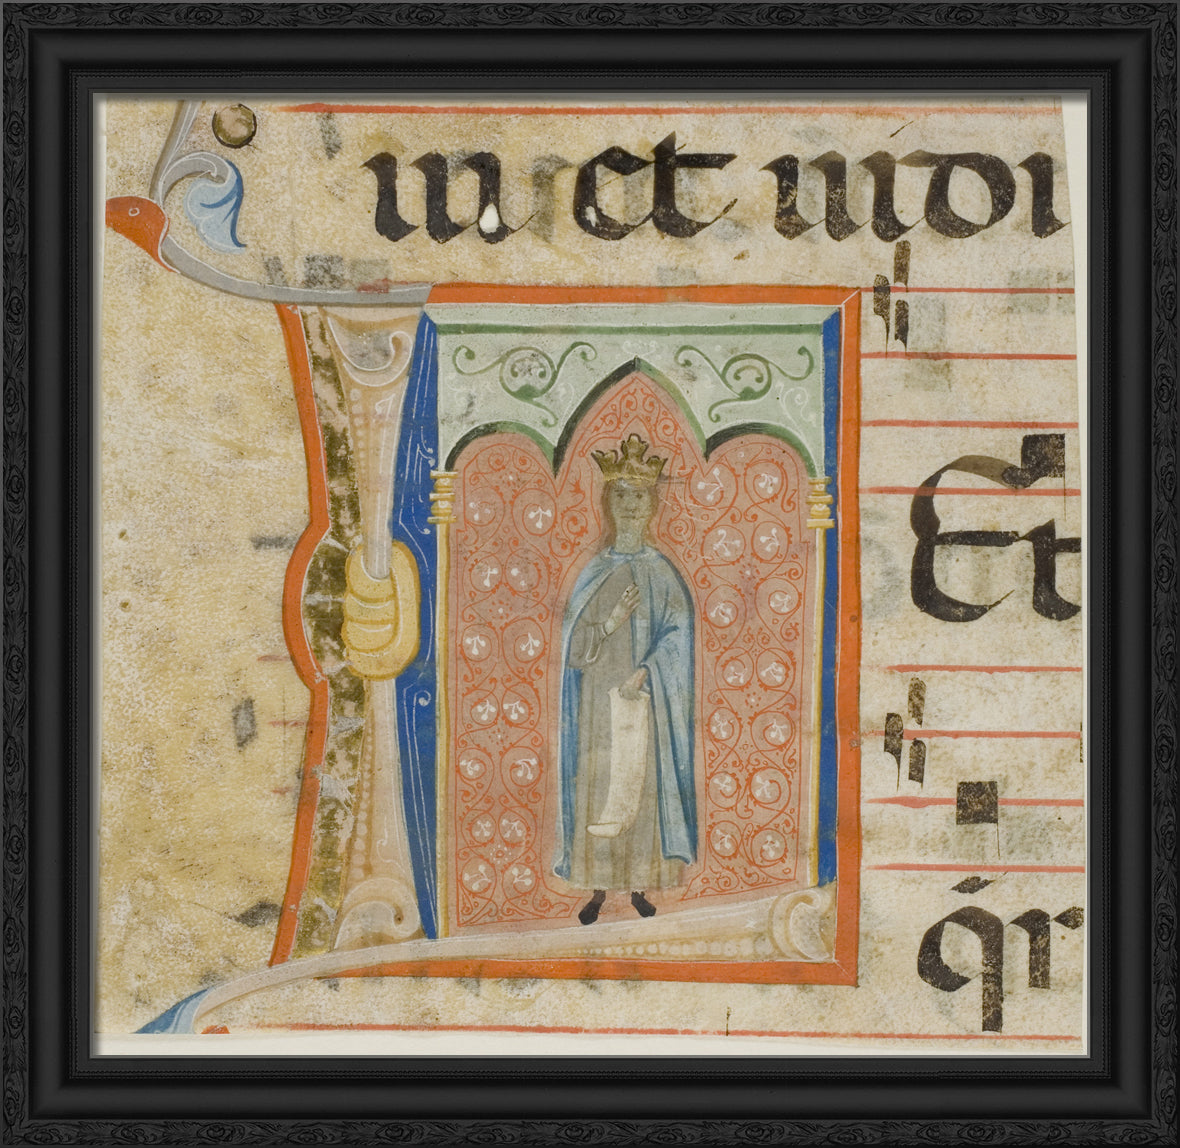 ui et uidi
Et
qr